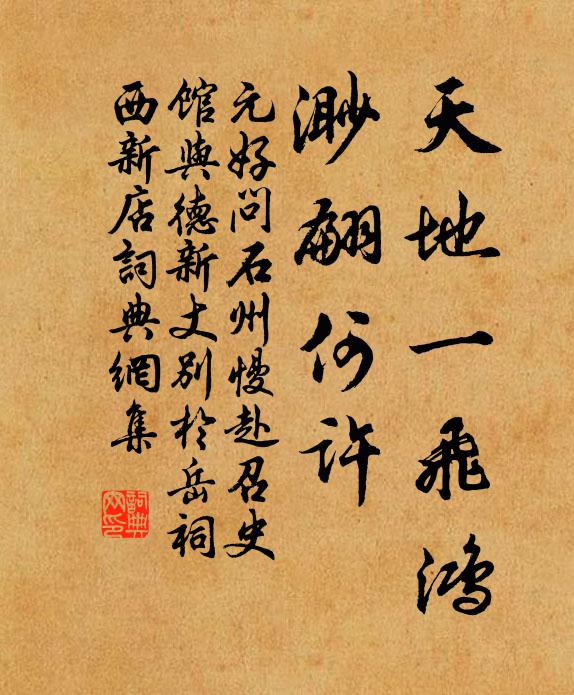 天地一飛鴻
渺翩何許
元好問石州慢赴召史
館與德新丈別於岳祠
西新店詞典網集
詞典網印